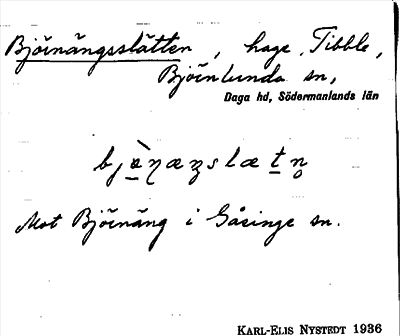 Björnängsslätten, hage, Tibble,
Björnlunda sn,
Daga hd, Södermanlands län
Mot Björnäng i Gåsinge sn.
KARL-ELIS NYSTEDT 1936